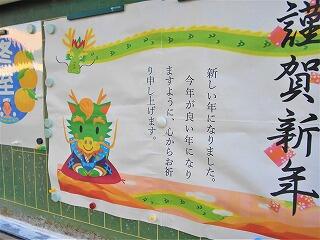 謹賀新年
新しい年になりました。
今年が良い年になり
ますように、心からお祈
り申し上げます。